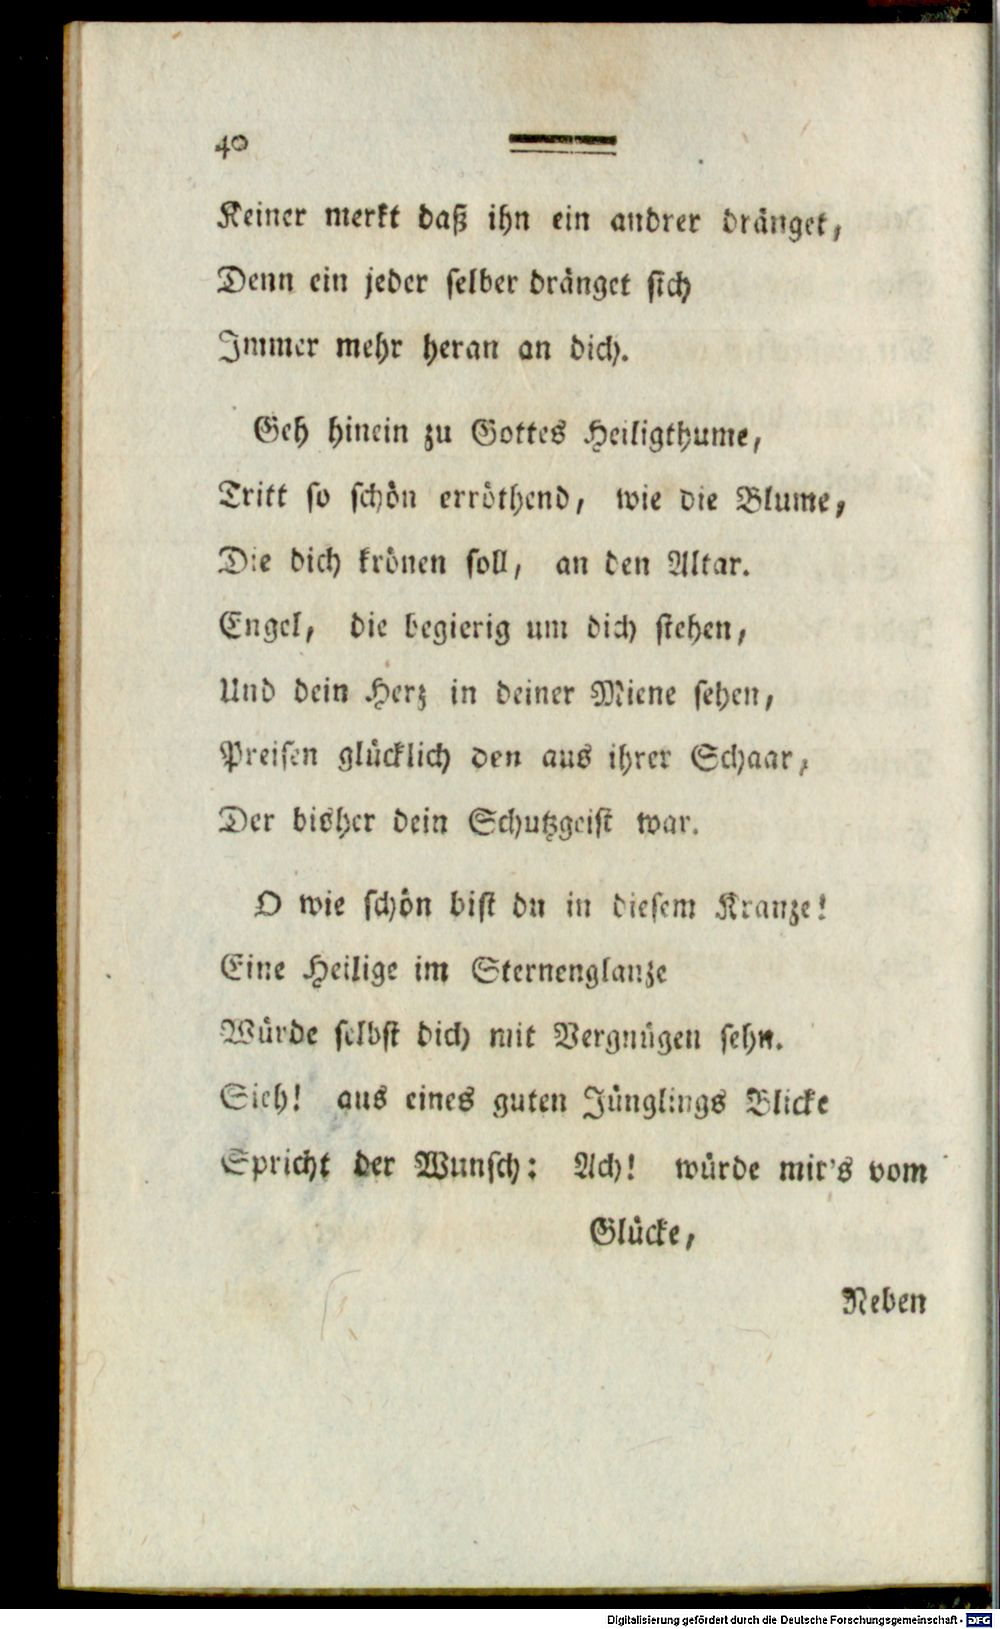 40
Keiner merkt daß ihn ein andrer dränget,
Denn ein jeder selber dränget sich
Immer mehr heran an dich.
Geh hinein zu Gottes Heiligthume,
Tritt so schön erröthend, wie die Blume,
Die dich krönen soll, an den Altar.
Engel, die begierig um dich stehen,
Und dein Herz in deiner Miene sehen,
Preisen glücklich den aus ihrer Schaar,
Der bisher dein Schutzgeist war.
O wie schön bist du in diesem Kranze!
Eine Heilige im Sternenglanze
Würde selbst dich mit Vergnügen sehn.
Sieh! aus eines guten Jünglings Blicke
Spricht der Wunsch: Ach! würde mir's vom
Glücke,
Neben
Digitalisierung gefördert durch die Deutsche Forschungsgemeinschaft - DFG